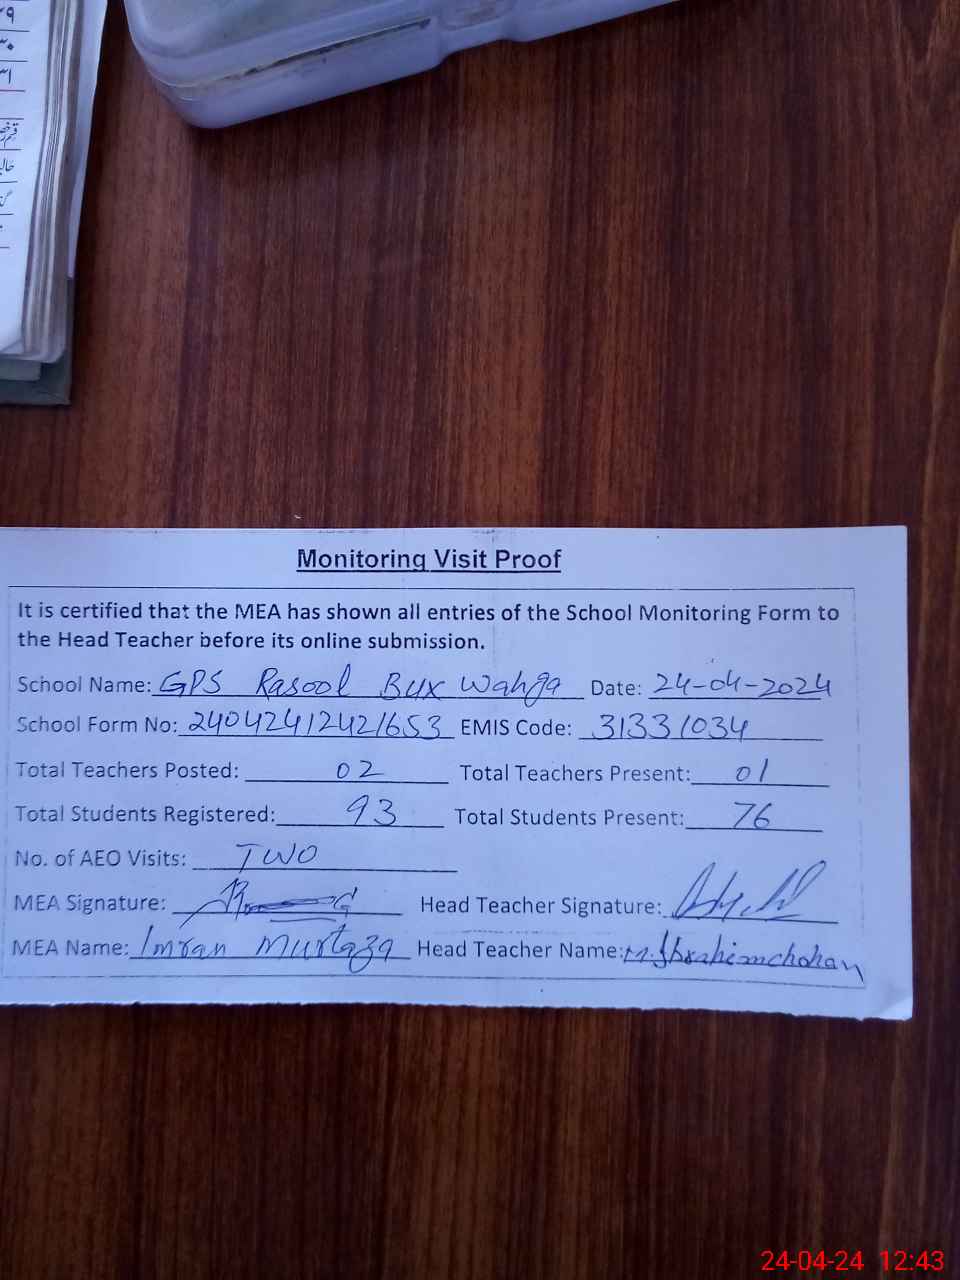 ۲۹
۳۰
۳۱
Monitoring Visit Proof
It is certified that the MEA has shown all entries of the School Monitoring Form to
the Head Teacher before its online submission.
School Name: GPS Rasool Bux Wahga Date: 24-04-2024
School Form No: 24042412421653 EMIS Code: 31331034
Total Teachers Posted: 02 Total Teachers Present: 01
Total Students Registered: 93 Total Students Present: 76
No. of AEO Visits: TWO
MEA Signature: Head Teacher Signature:
MEA Name: Imran Murtaza Head Teacher Name: M. Ibrahim chohan
24-04-24 12:43